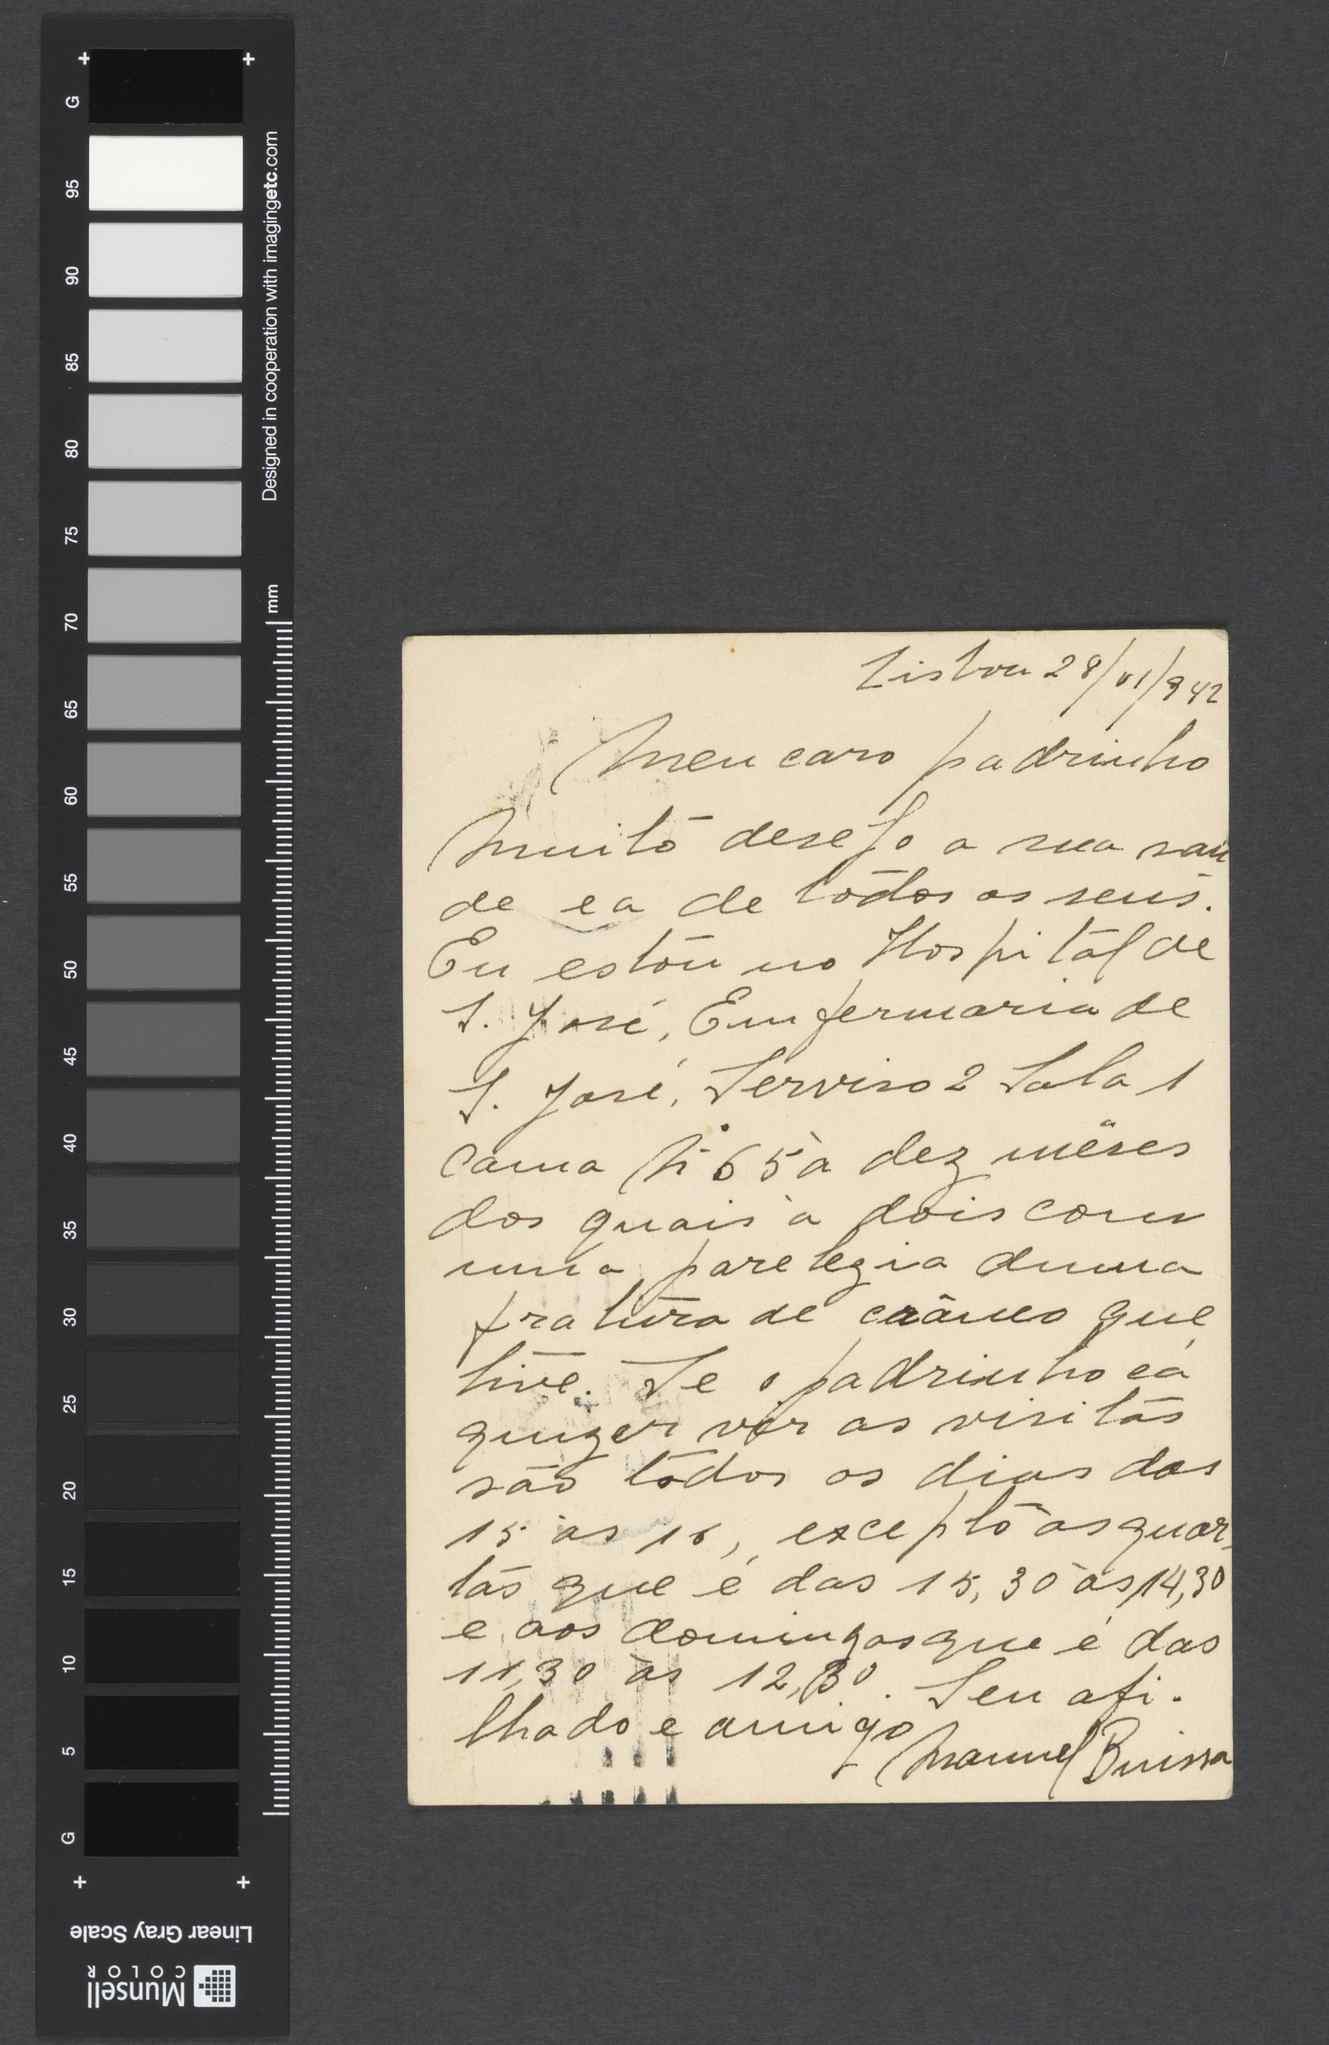 G
95
90
85
80
75
70
65
60
55
50
45
40
35
30
25
20
15
10
5
G
Designed in cooperation with imagingetc.com
mm
Linear Gray Scale
Munsell
COLOR
Lisboa 28/VI/942
Meu caro padrinho
Muito desejo a sua sau
de e a de todos os seus.
Eu estou no Hospital de
S. José, Emfermaria de
S. José, Serviso 2 Sala 1
cama Nº 65 à dez mêses
dos quais à dois com
uma parelezia duma
fratura de crâneo que
tive. Se o padrinho cá
quizer vir as visitas
são todos os dias das
15 às 16, excepto as quar
tas que é das 15,30 às 14,30
e aos domingos que é das
11,30 às 12,30. Seu afi-
lhado e amigo
Manuel Buissa